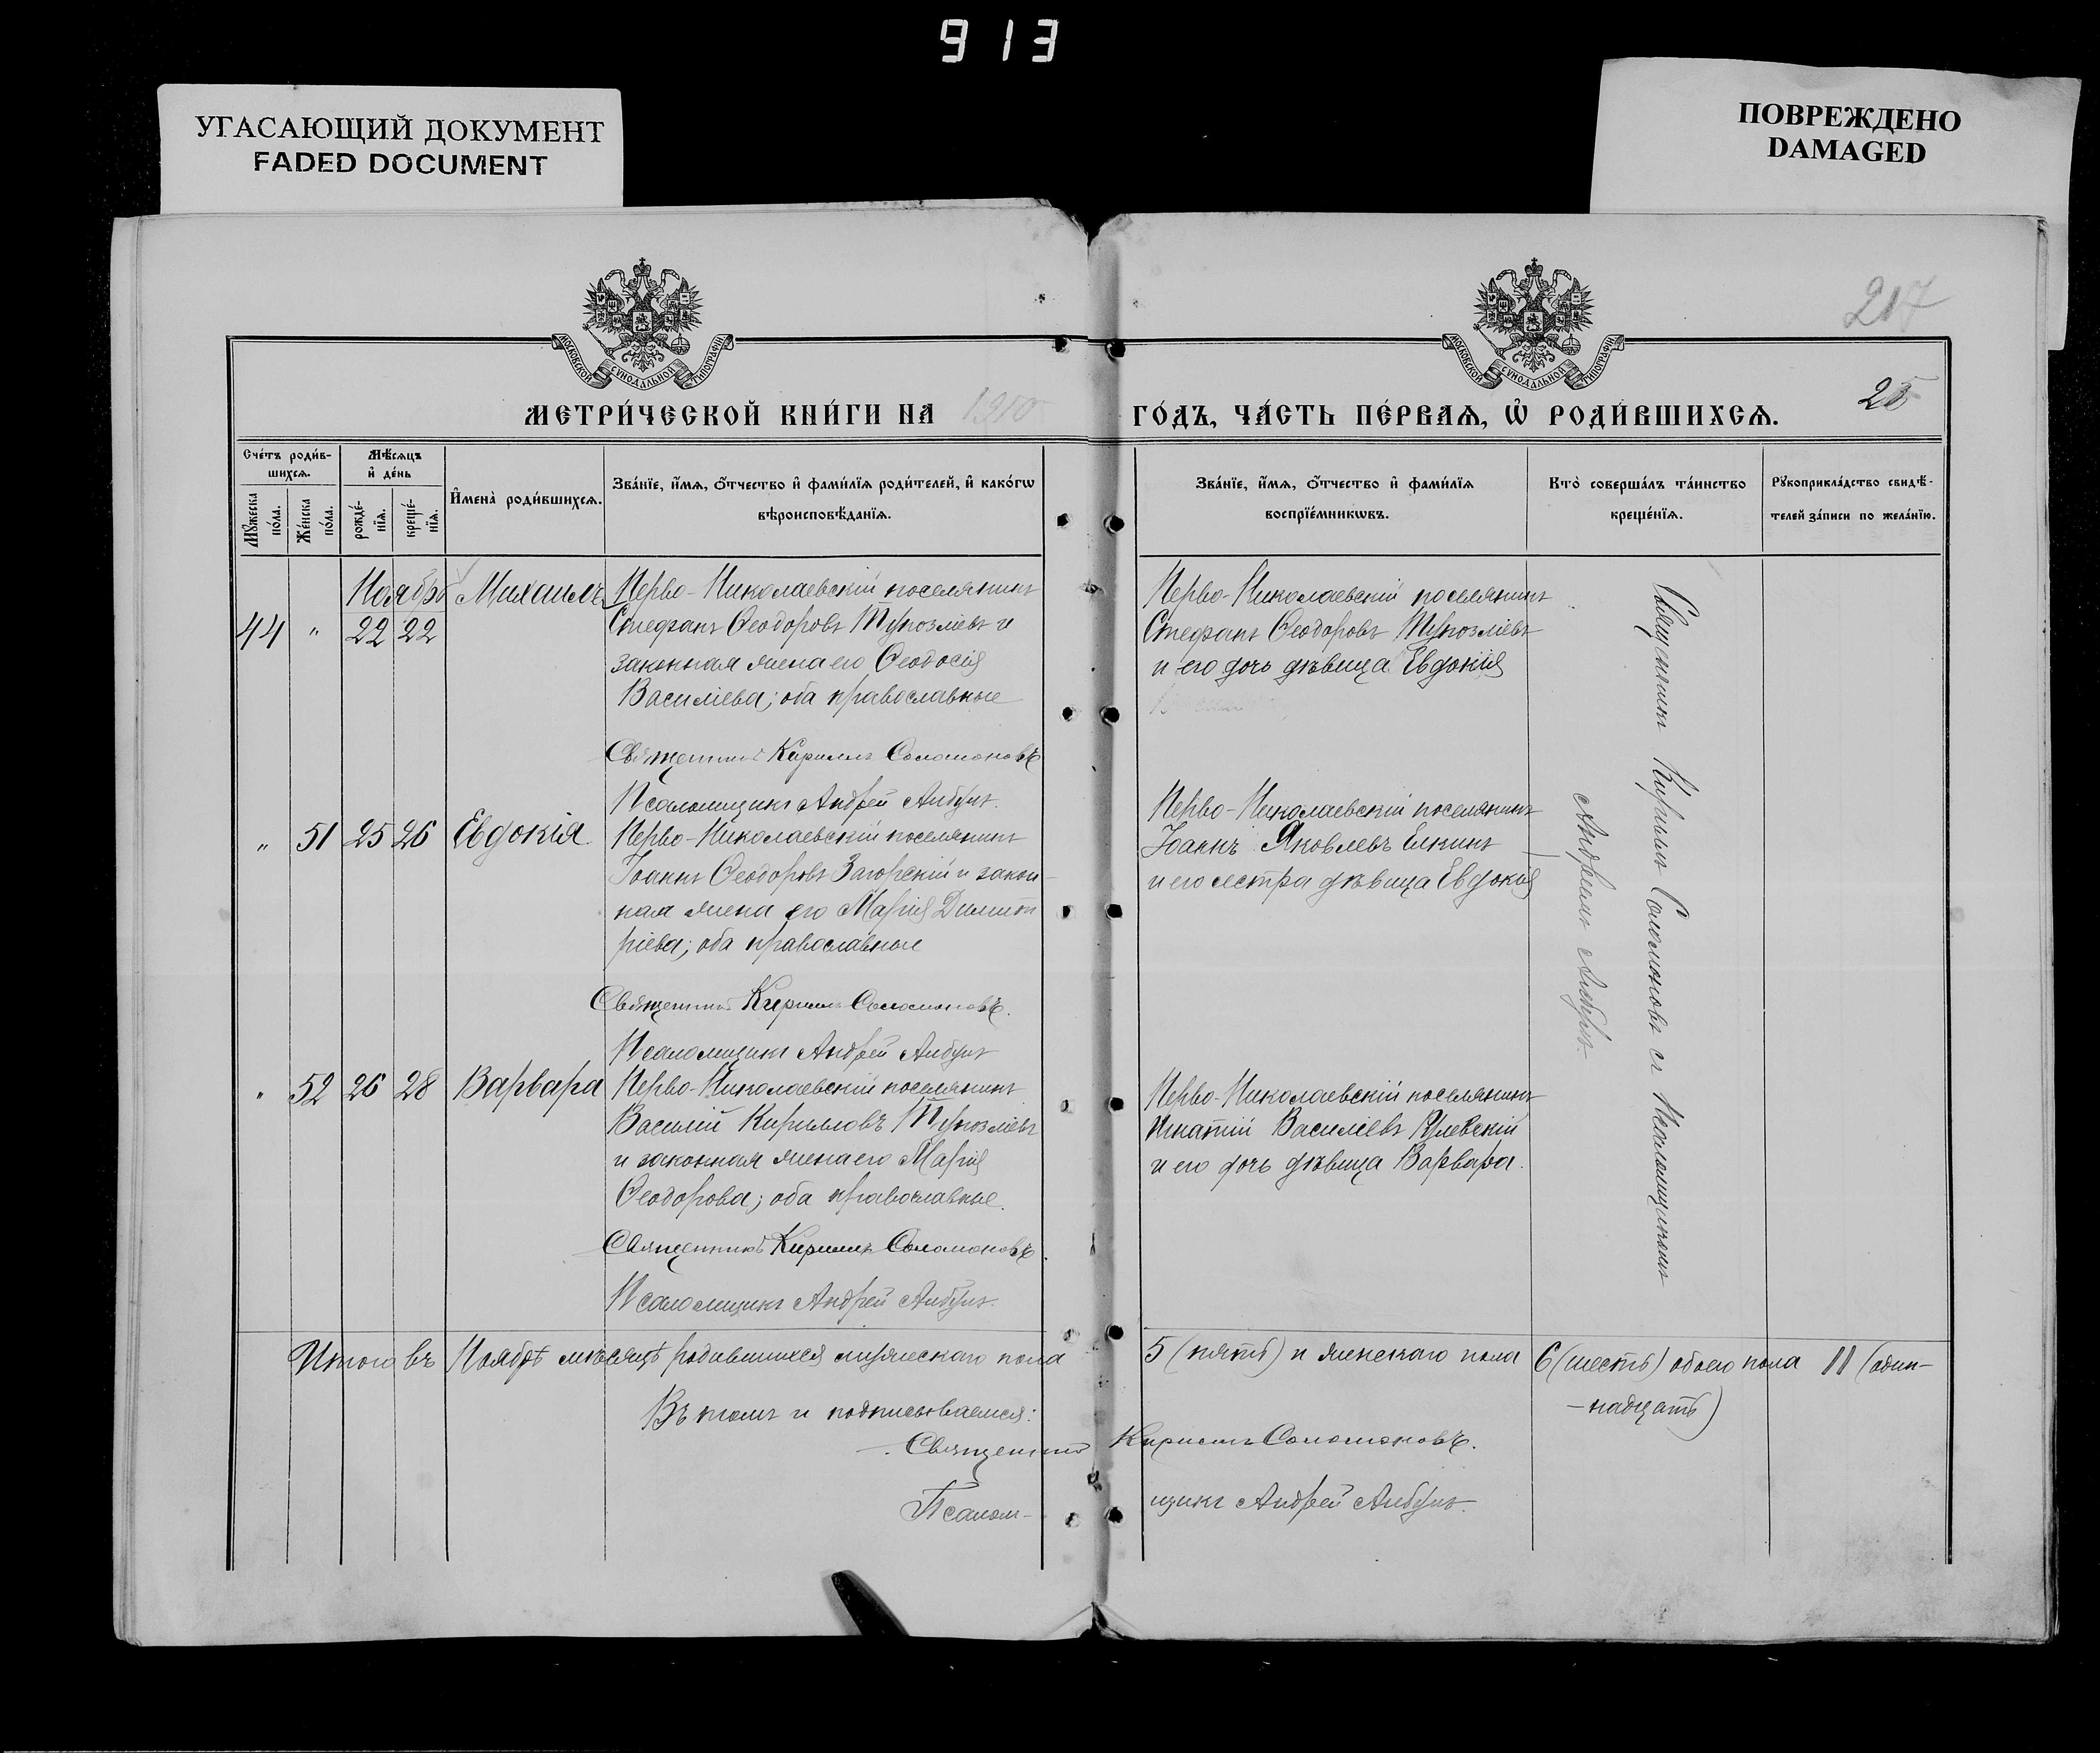 913
УГАСАЮЩИЙ ДОКУМЕНТ
FADED DOCUMENT
ПОВРЕЖДЕНО
DAMAGED
217
МОСКОВСКОЙ СѴНОДАЛЬНОЙ ТИПОГРАФІИ
МОСКОВСКОЙ СѴНОДАЛЬНОЙ ТИПОГРАФІИ
25
МЕТРИ́ЧЕСКОЙ КНИ́ГИ НА 1910
ГО́ДЪ, ЧА́СТЬ ПЕ́РВАѦ, Ѡ҆ РОДИ́ВШИХСѦ.
Сче́тъ роди́в-
шихсѧ.
Мꙋ́жеска по́ла.
Же́нска по́ла.
Мѣ́сѧцъ
и҆ де́нь
рожде́-
нїѧ.
креще́-
нїѧ.
И҆мена̀ роди́вшихсѧ.
Зва́нїе, и҆́мѧ, ѻ҆́тчество и҆ фами́лїѧ роди́телей, и҆ како́гѡ
вѣроисповѣ́данїѧ.
Зва́нїе, и҆́мѧ, ѻ҆́тчество и҆ фами́лїѧ
воспрїе́мникѡвъ.
Кто̀ соверша́лъ та́инство
креще́нїѧ.
Рꙋкоприкла́дство свидѣ́-
телей за́писи по жела́нїю.
Ноябрь
44 " 22 22 Михаилъ
Перво-Николаевскій поселянинъ
Стефанъ Ѳеодоровъ и
законная жена его Ѳеодосія
Василіева; оба православные
Священникъ Кириллъ Соломоновъ
Псаломщикъ Андрей Анбуръ.
Перво-Николаевскій поселянинъ
Стефанъ Ѳеодоровъ
и его дочь дѣвица Евдокія
" 51 25 26 Евдокія
Перво-Николаевскій поселянинъ
Іоаннъ Ѳеодоровъ Загорскій и закон-
ная жена его Марія Димит
ріева; оба православные
Священникъ Кириллъ Соломоновъ.
Псаломщикъ Андрей
Перво-Николаевскій поселянинъ
Іоаннъ Яковлевъ Елкинъ
и его сестра дѣвица Евдокія
" 52 26 28 Варвара
Перво-Николаевскій поселянинъ
Василій Кирилловъ
и законная жена его Марія
Ѳеодорова; оба православные.
Священникъ Кириллъ Соломоновъ.
Псаломщикъ Андрей
Перво-Николаевскій поселянинъ
Игнатій Василіевъ
и его дочь дѣвица Варвара.
Священникъ Кириллъ Соломоновъ съ Псаломщикомъ
Андреемъ
Итого въ Ноябрѣ мѣсяцѣ родившихся мужескаго пола 5 (пять) и женскаго пола 6 (шесть) обоего пола 11 (один-
-надцать)
Въ томъ и подписываемся:
Священникъ Кириллъ Соломоновъ.
Псалом- щикъ Андрей